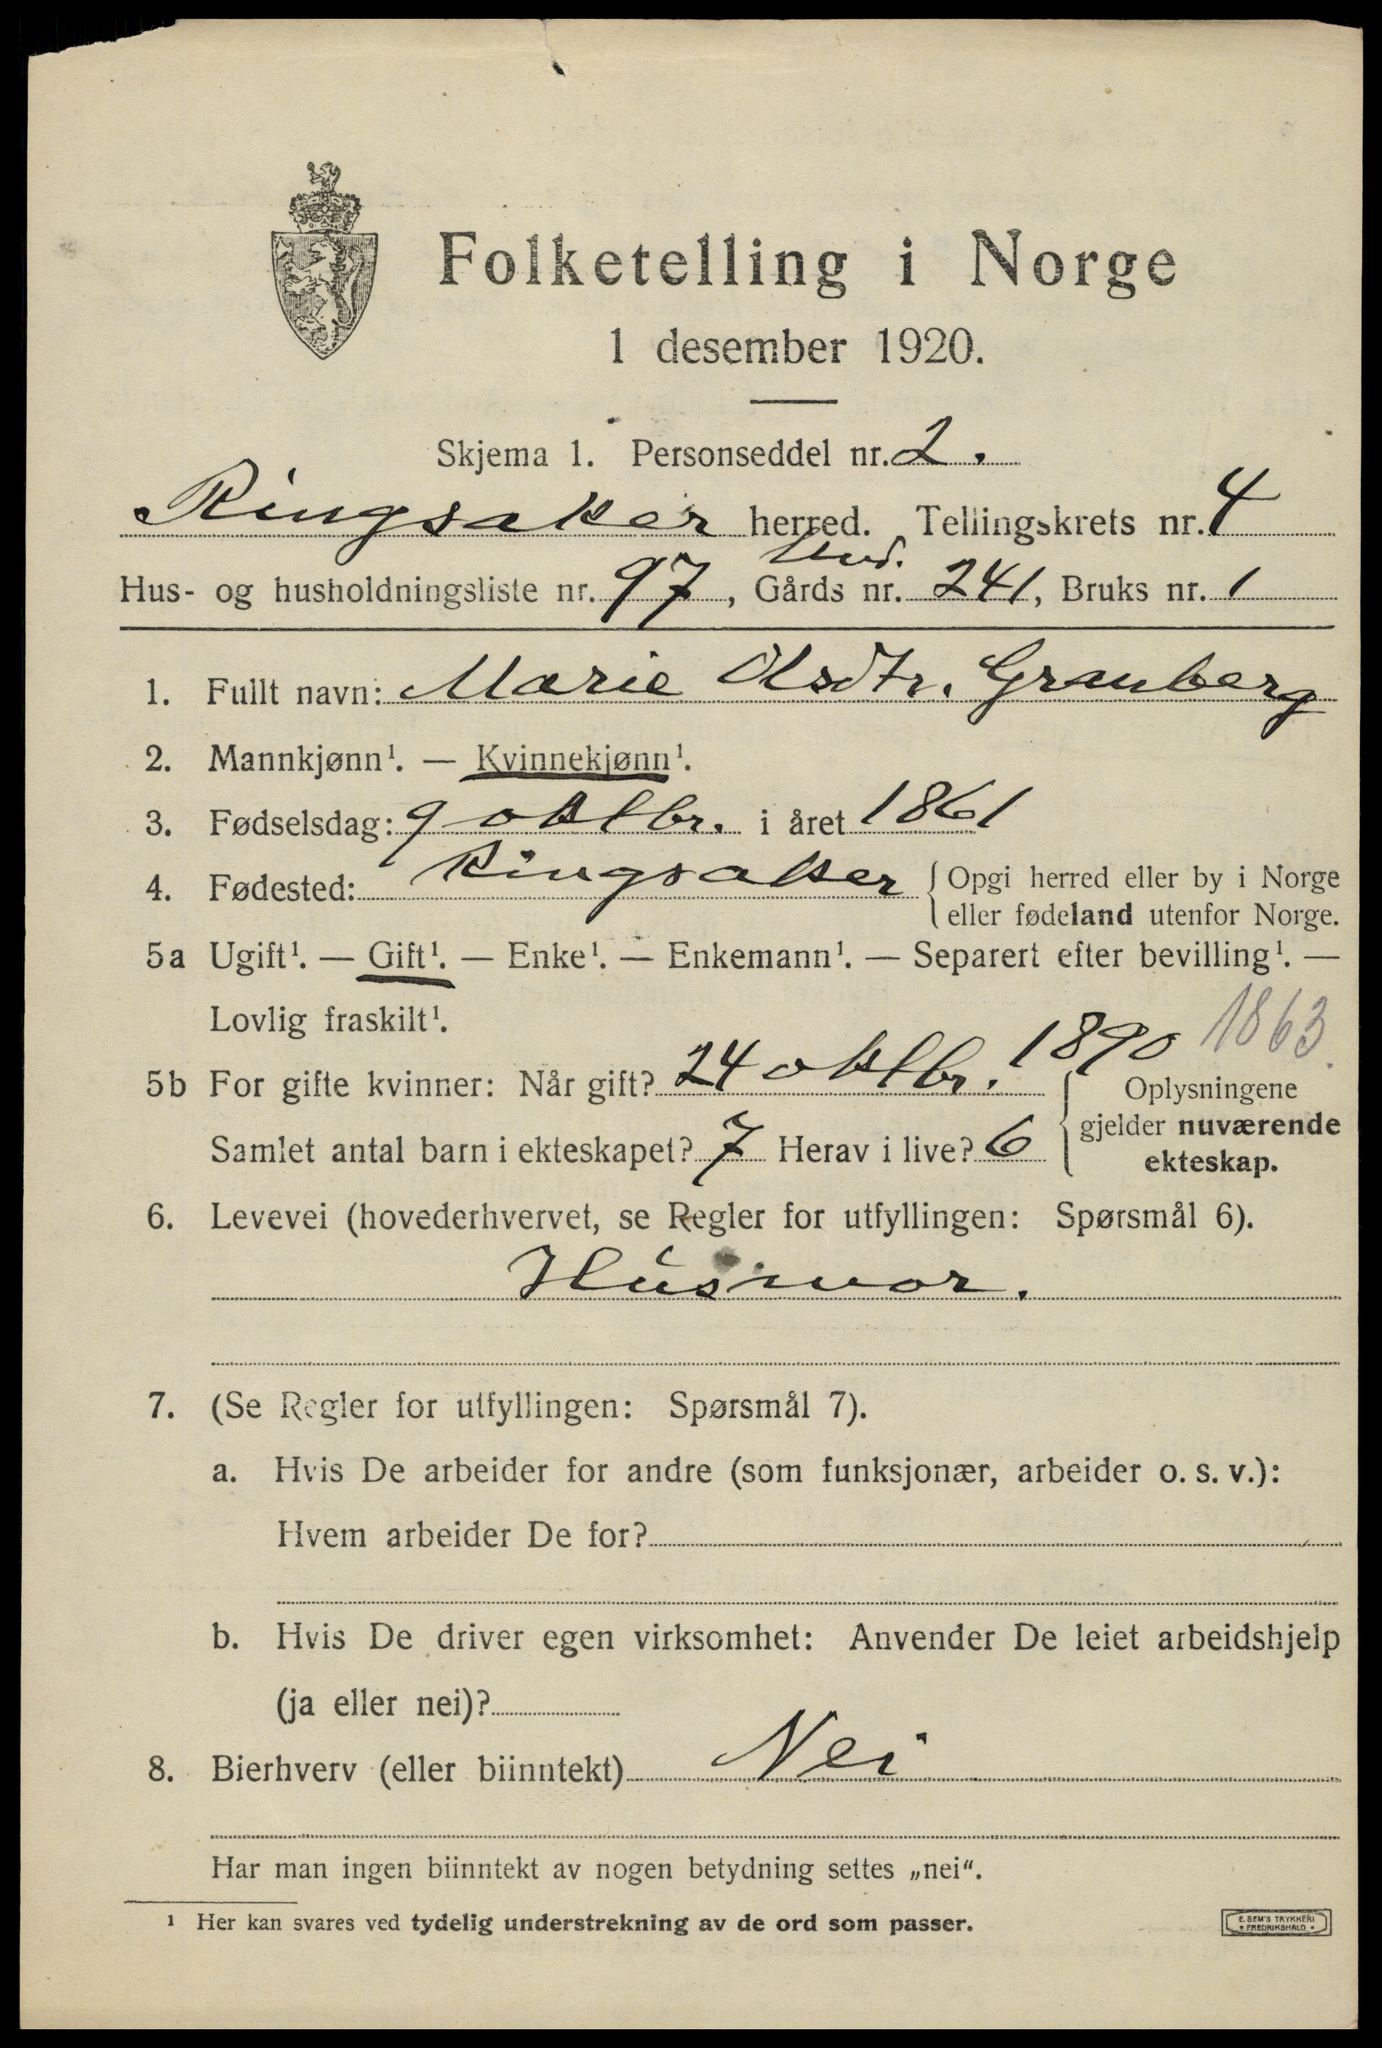 Folketelling i Norge
1 desember 1920.
Skjema 1. Personseddel nr. 2.
Ringsaker herred. Tellingskrets nr. 4
Und.
Hus- og husholdningsliste nr. 97, Gårds nr. 241, Bruks nr. 1
1. Fullt navn: Marie Olsdtr. Granberg
2. Mannkjønn¹. — Kvinnekjønn¹.
3. Fødselsdag: 9 oktbr. i året 1861
4. Fødested: Ringsaker { Opgi herred eller by i Norge
eller fødeland utenfor Norge.
5a Ugift¹. — Gift¹. — Enke¹. — Enkemann¹. — Separert efter bevilling¹. —
Lovlig fraskilt¹.
1863.
5b For gifte kvinner: Når gift? 24 oktbr. 1890 { Oplysningene
gjelder nuværende
Samlet antal barn i ekteskapet? 7 Herav i live? 6
ekteskap.
6. Levevei (hovederhvervet, se Regler for utfyllingen: Spørsmål 6).
Husmor.
7. (Se Regler for utfyllingen: Spørsmål 7).
a. Hvis De arbeider for andre (som funksjonær, arbeider o. s. v.):
Hvem arbeider De for?
b. Hvis De driver egen virksomhet: Anvender De leiet arbeidshjelp
(ja eller nei)?
8. Bierhverv (eller biinntekt) Nei
Har man ingen biinntekt av nogen betydning settes „nei“.
¹ Her kan svares ved tydelig understrekning av de ord som passer.
E. SEM'S TRYKKERI
* FREDRIKSHALD *